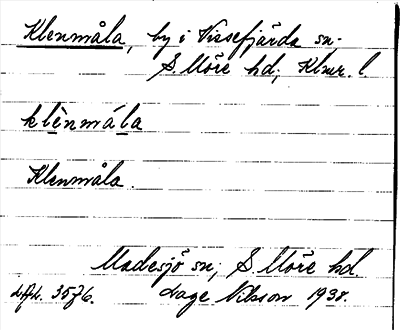 Klenmåla, by i Vissefjärda sn.
S. Möre hd; Klmr. l.
klènmåla
Klenmåla.
Madesjö sn; S. Möre hd.
3576. Nilsson 1938.